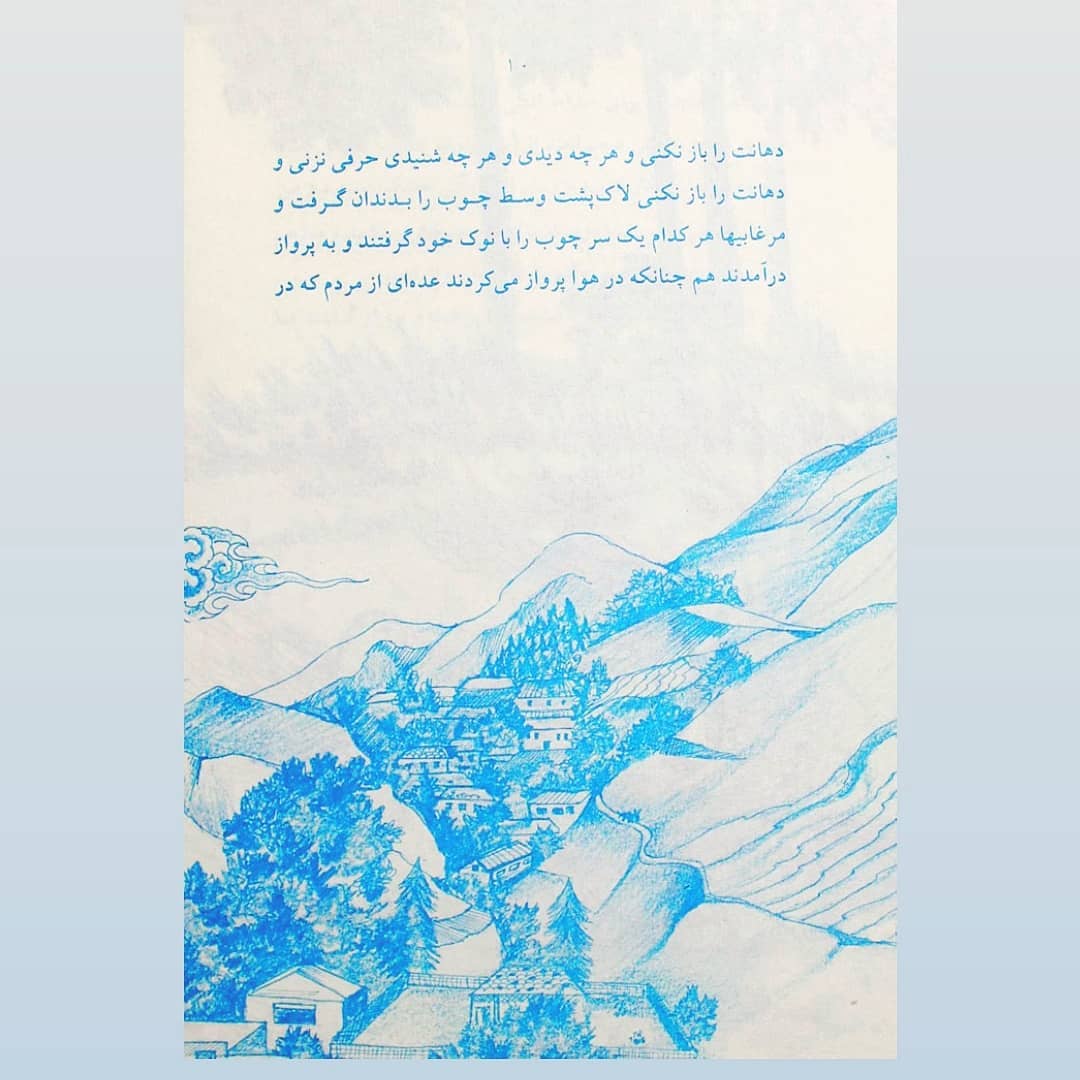 ۱۰
دهانت را باز نکنی و هر چه دیدی و هر چه شنیدی حرفی نزنی و
دهانت را باز نکنی لاک‌پشت وسط چوب را بدندان گرفت و
مرغابیها هر کدام یک سر چوب را با نوک خود گرفتند و به پرواز
درآمدند هم چنانکه در هوا پرواز می‌کردند عده‌ای از مردم که در